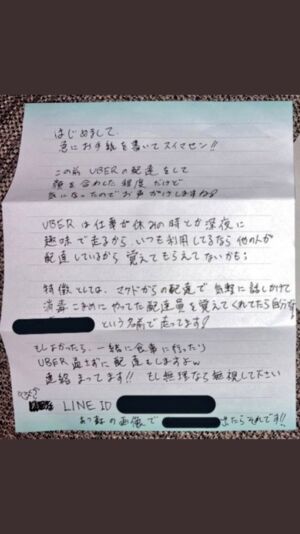 はじめまして、
急にお手紙を書いてスイマセン!!
この前 UBERの配達をして
顔を合わした程度だけど
気になったのでお声がけしますね?
UBERは仕事が休みの時とか深夜に
趣味で走るから いつも利用してるなら他の人が
配達しているから 覚えてもらえてないかも;
特徴としては、マクドからの配達で 気軽に話しかけて
消毒こまめに やってた配達員を覚えてくれてたら自分
という名前で走ってます?
もしよかったら、一緒に食事に行ったり
UBER 通さずに配達もしますよw
連絡 まってます!! もし無理なら無視して下さい
LINE ID
の画像で
出たらそれです!!